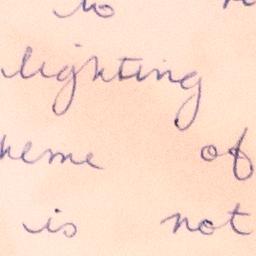 to
lighting
heme of
is not